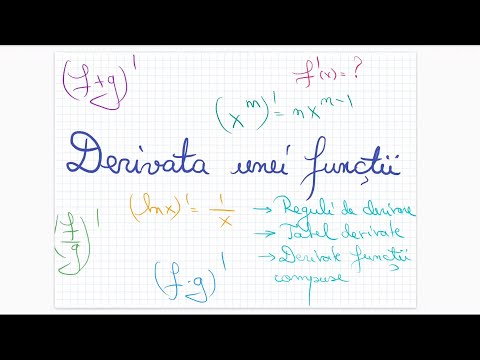 (f+g)'
f'(x)=?
(xⁿ)' = nxⁿ⁻¹
Derivata unei funcții
(ln x)' = 1/x
→ Reguli de derivare
→ Tabel derivate
→ Derivate funcții
compuse
(f/g)'
(f·g)'